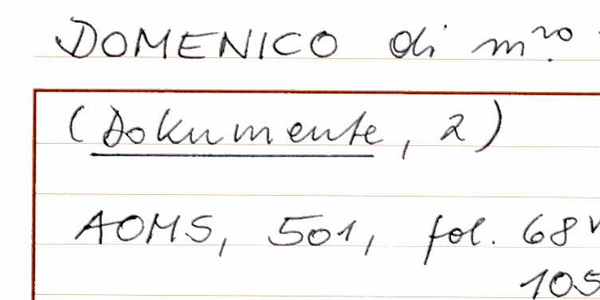 DOMENICO di mro.
(Dokumente, 2)
AOMS, 501, fol. 68v
105